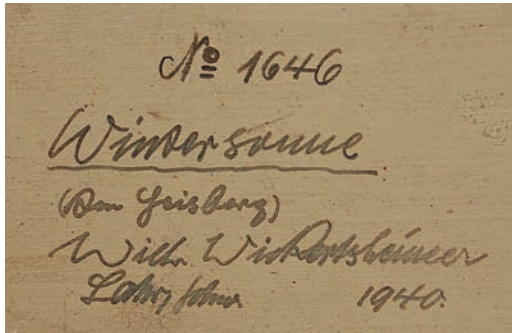 № 1646
Wintersonne
Geisberg)
Wilh. Wickertsheimer
Lahr 1940.